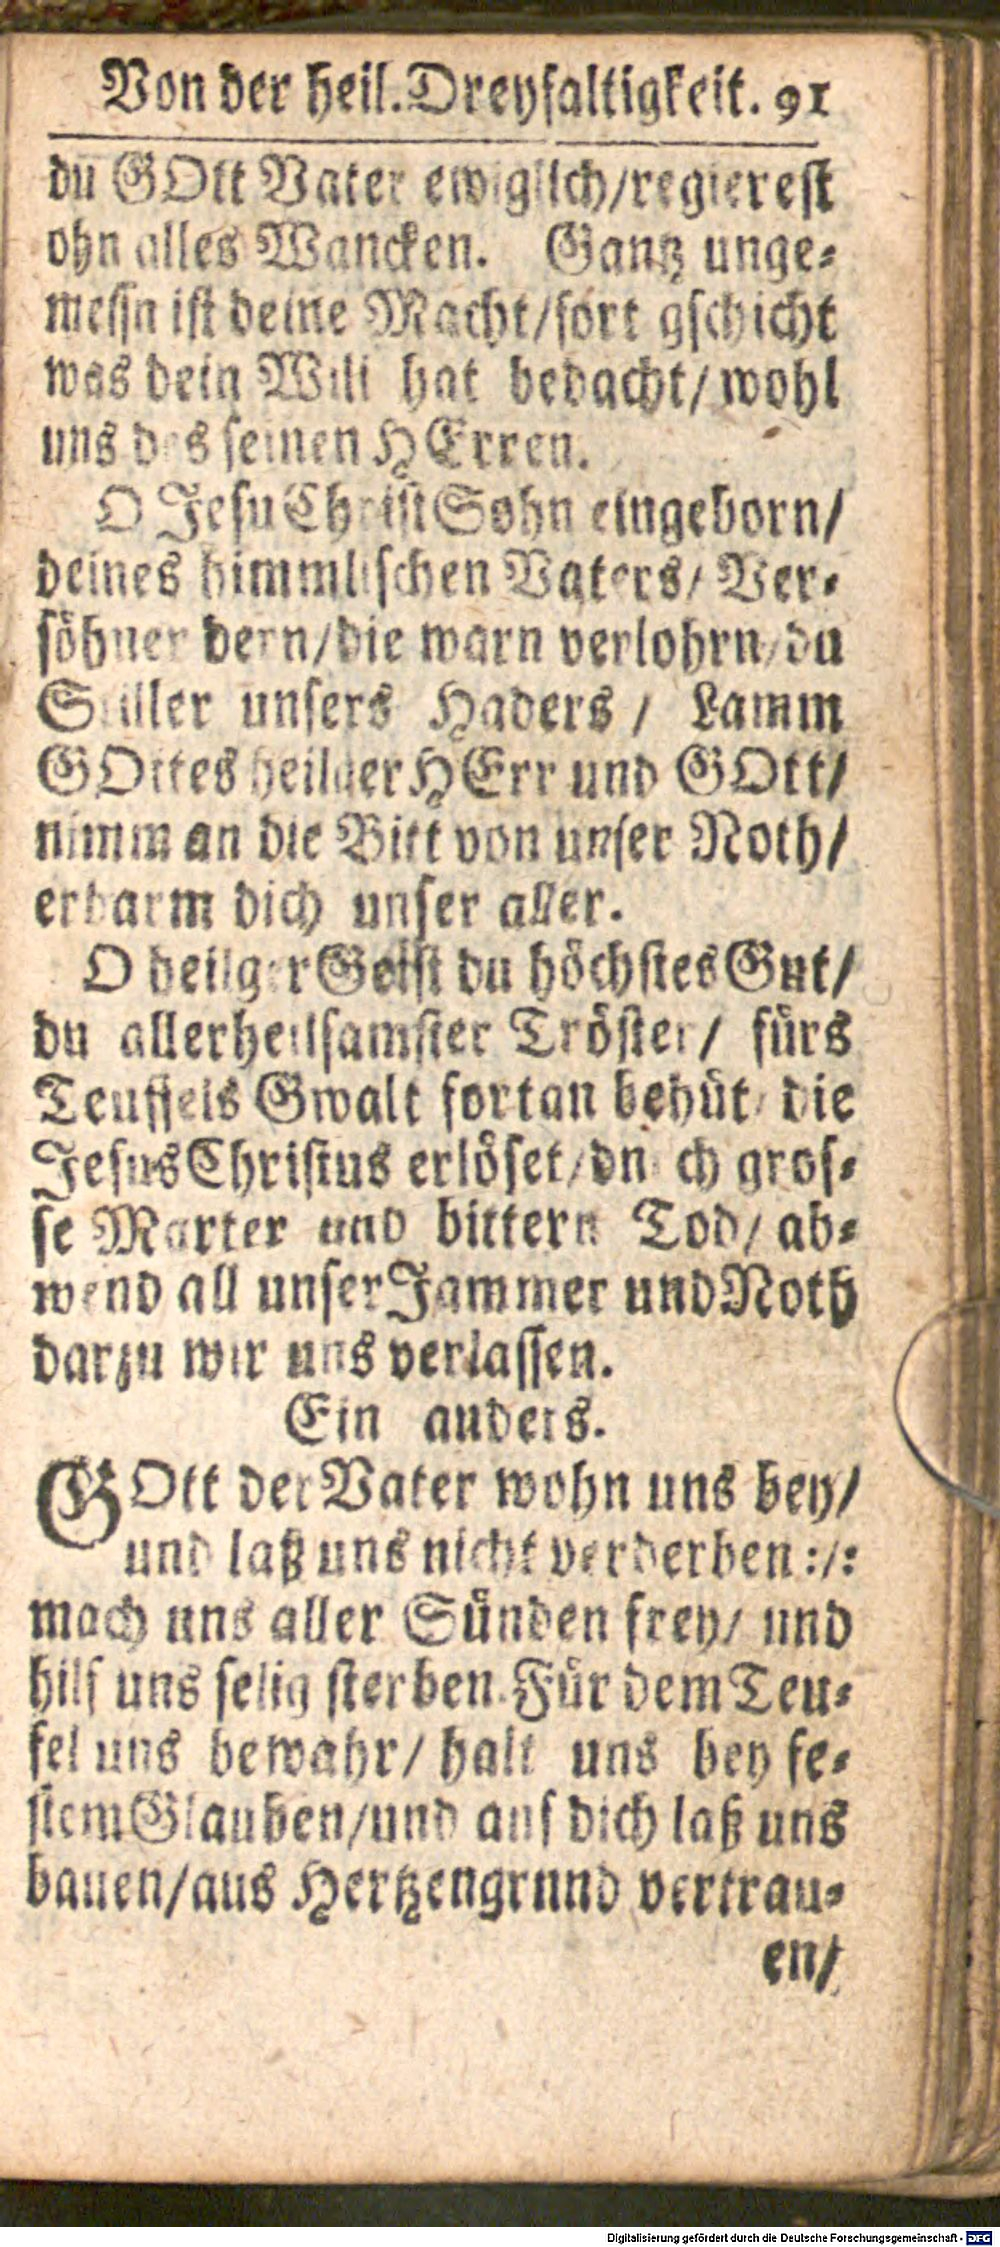 Von der heil. Dreyfaltigkeit. 91
du GOtt Vater ewiglich/regierest
ohn alles Wancken. Gantz unge-
messn ist deine Macht/fort gschicht
was dein Will hat bedacht/wohl
uns des feinen HErren.
O Jesu Christ Sohn eingeborn/
deines himmlischen Vaters/ Ver-
söhner dern/die warn verlohrn/du
Stiller unsers Haders / Lamm
GOttes heilger HErr und GOtt/
nimm an die Bitt von unser Noth/
erbarm dich unser aller.
O heilger Geist du höchstes Gut/
du allerheilsamster Tröster/ fürs
Teuffels Gwalt fortan behüt/ die
Jesus Christus erlöset/durch gros-
se Marter und bittern Tod/ ab-
wend all unser Jammer und Noth
darzu wir uns verlassen.
Ein anders.
GOtt der Vater wohn uns bey/
und laß uns nicht verderben:/:
mach uns aller Sünden frey/ und
hilf uns selig sterben. Für dem Teu-
fel uns bewahr/ halt uns bey fe-
stem Glauben/und auf dich laß uns
bauen/aus Hertzengrund vertrau-
en/
Digitalisierung gefördert durch die Deutsche Forschungsgemeinschaft - DFG